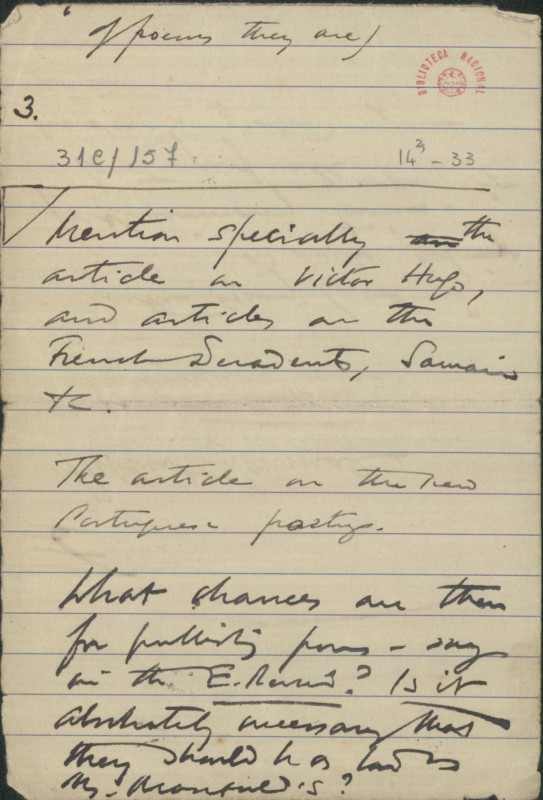 of poems they are)
BIBLIOTECA NACIONAL
3.
31C/157
14³-33
Mention specially an the
article on Victor Hugo,
and articles on the
French Decadents, Samain
&c.
The article on the new
Portuguese poetry.
What chances are there
for publishing poems - say
in the E. Review? Is it
absolutely necessary that
they should be as bad as
Mr. 's?